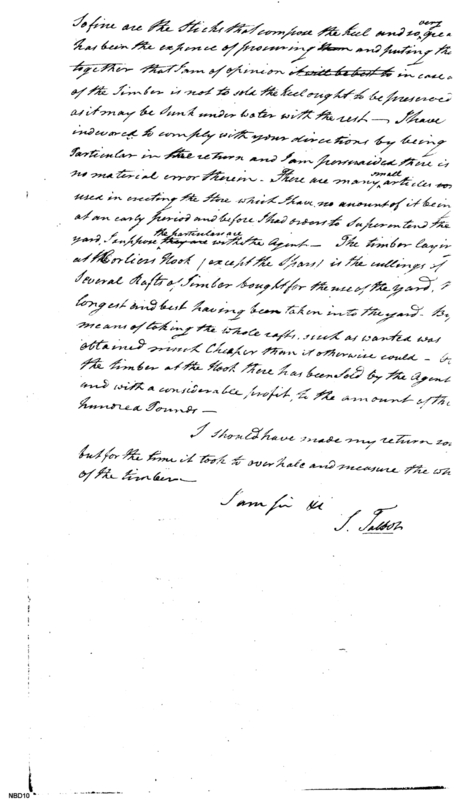 So fine are the Sticks that compose the keel and so very grea
has been the expence of procuring them and puting th
together that I am of opinion it will be best to in case
of the Timber is not to sole the keel ought to be preserved
as it may be Sunk under water with the rest — I have
indevored to comply with your directions by being
Particular in the return and I am perswaided there is
no material error therein. There are many small articles
used in erecting the Store which I have no amount of it bein
at an early period and before I had orders to Superentend the
yard, I suppose the particulars are they are with the Agent — The timber layin
at Corliers Hook (except the Spars) is the cullings of
Several Rafts of Timber bought for the use of the yard.
longest and best having been taken in to the yard. By
means of taking the whole rafts, such as wanted was
obtained much Cheaper than it otherwise could —
the timber at the Hook there has been sold by the Agent
and with a considerable profit, to the amount of
hundred Pounds —
I should have made my return
but for the time it took to over hale and measure the wh
of the timber
I am Sir &c
S. Talbot
NBD10